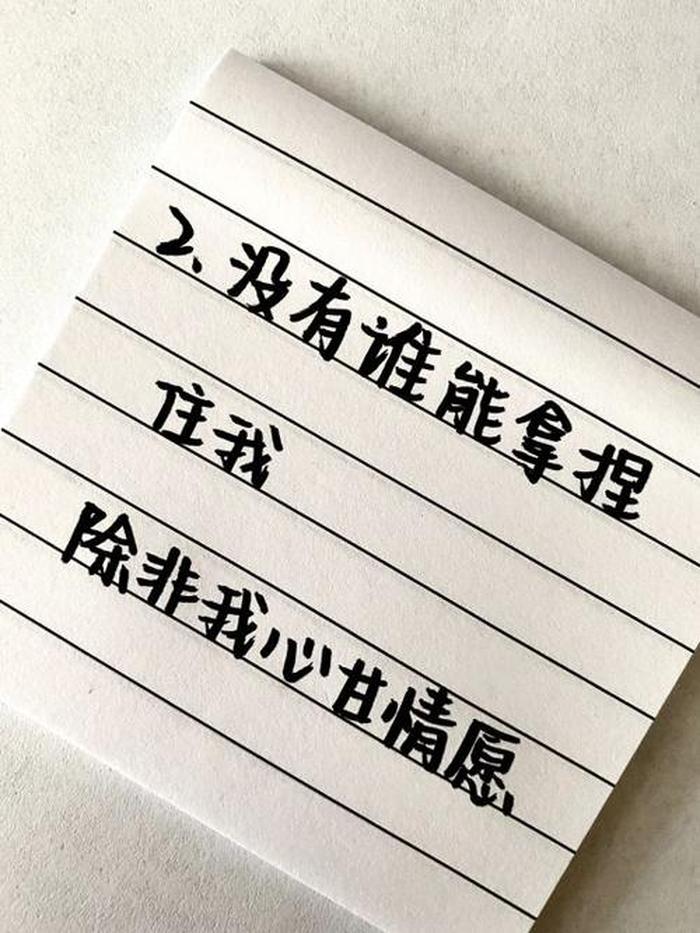 2、没有谁能拿捏
住我
除非我心甘情愿